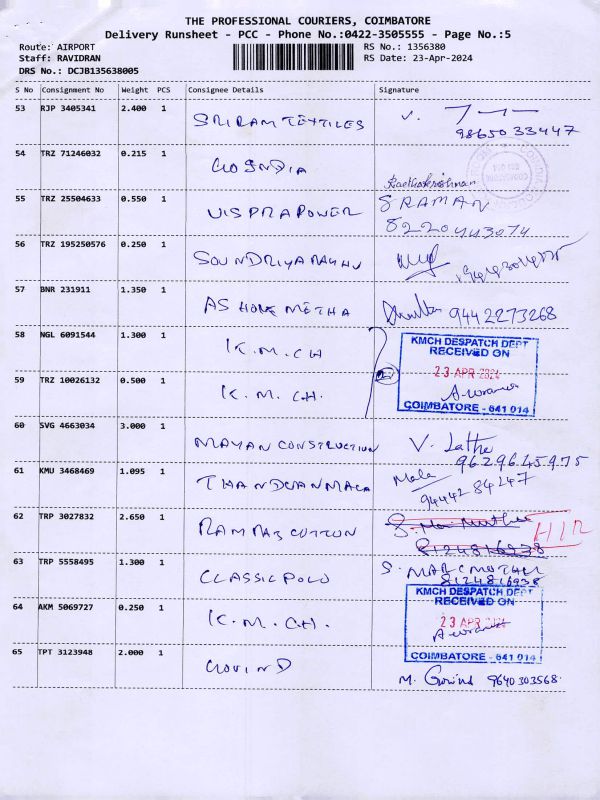 THE PROFESSIONAL COURIERS, COIMBATORE
Delivery Runsheet - PCC - Phone No.:0422-3505555 - Page No.:5
Route: AIRPORT
Staff: RAVIDRAN
DRS No.: DCJB135638005
RS No.: 1356380
RS Date: 23-Apr-2024
S No Consignment No Weight PCS Consignee Details Signature
53 RJP 3405341 2.400 1 SRIRAM TEXTILES
9865033447
54 TRZ 71246032 0.215 1 INDIA
Radhakrishnan
55 TRZ 25504633 0.550 1 VISPRA POWER S RAMAN
8220443074
56 TRZ 195250576 0.250 1 SOUNDRIYA
57 BNR 231911 1.350 1 ASHOKE METHA 9442273268
58 NGL 6091544 1.300 1 K.M.CH
KMCH DESPATCH DEPT
RECEIVED ON
23 APR 2024
COIMBATORE - 641 014
59 TRZ 10026132 0.500 1 K.M.CH.
60 SVG 4663034 3.000 1 MAYAN CONSTRUCTION V. Latha
9629645975
61 KMU 3468469 1.095 1 Mala
9444284247
62 TRP 3027832 2.650 1 COTTON
8124816938
63 TRP 5558495 1.300 1 CLASSIC POLO S.
8124816938
64 AKM 5069727 0.250 1 K.M.CH.
KMCH DESPATCH DEPT
RECEIVED ON
23 APR 2024
COIMBATORE - 641 014
65 TPT 3123948 2.000 1 GOVIND
M. Govind 9640303568.